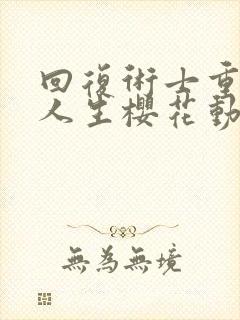 回復術士重
人生櫻花動
無為無境